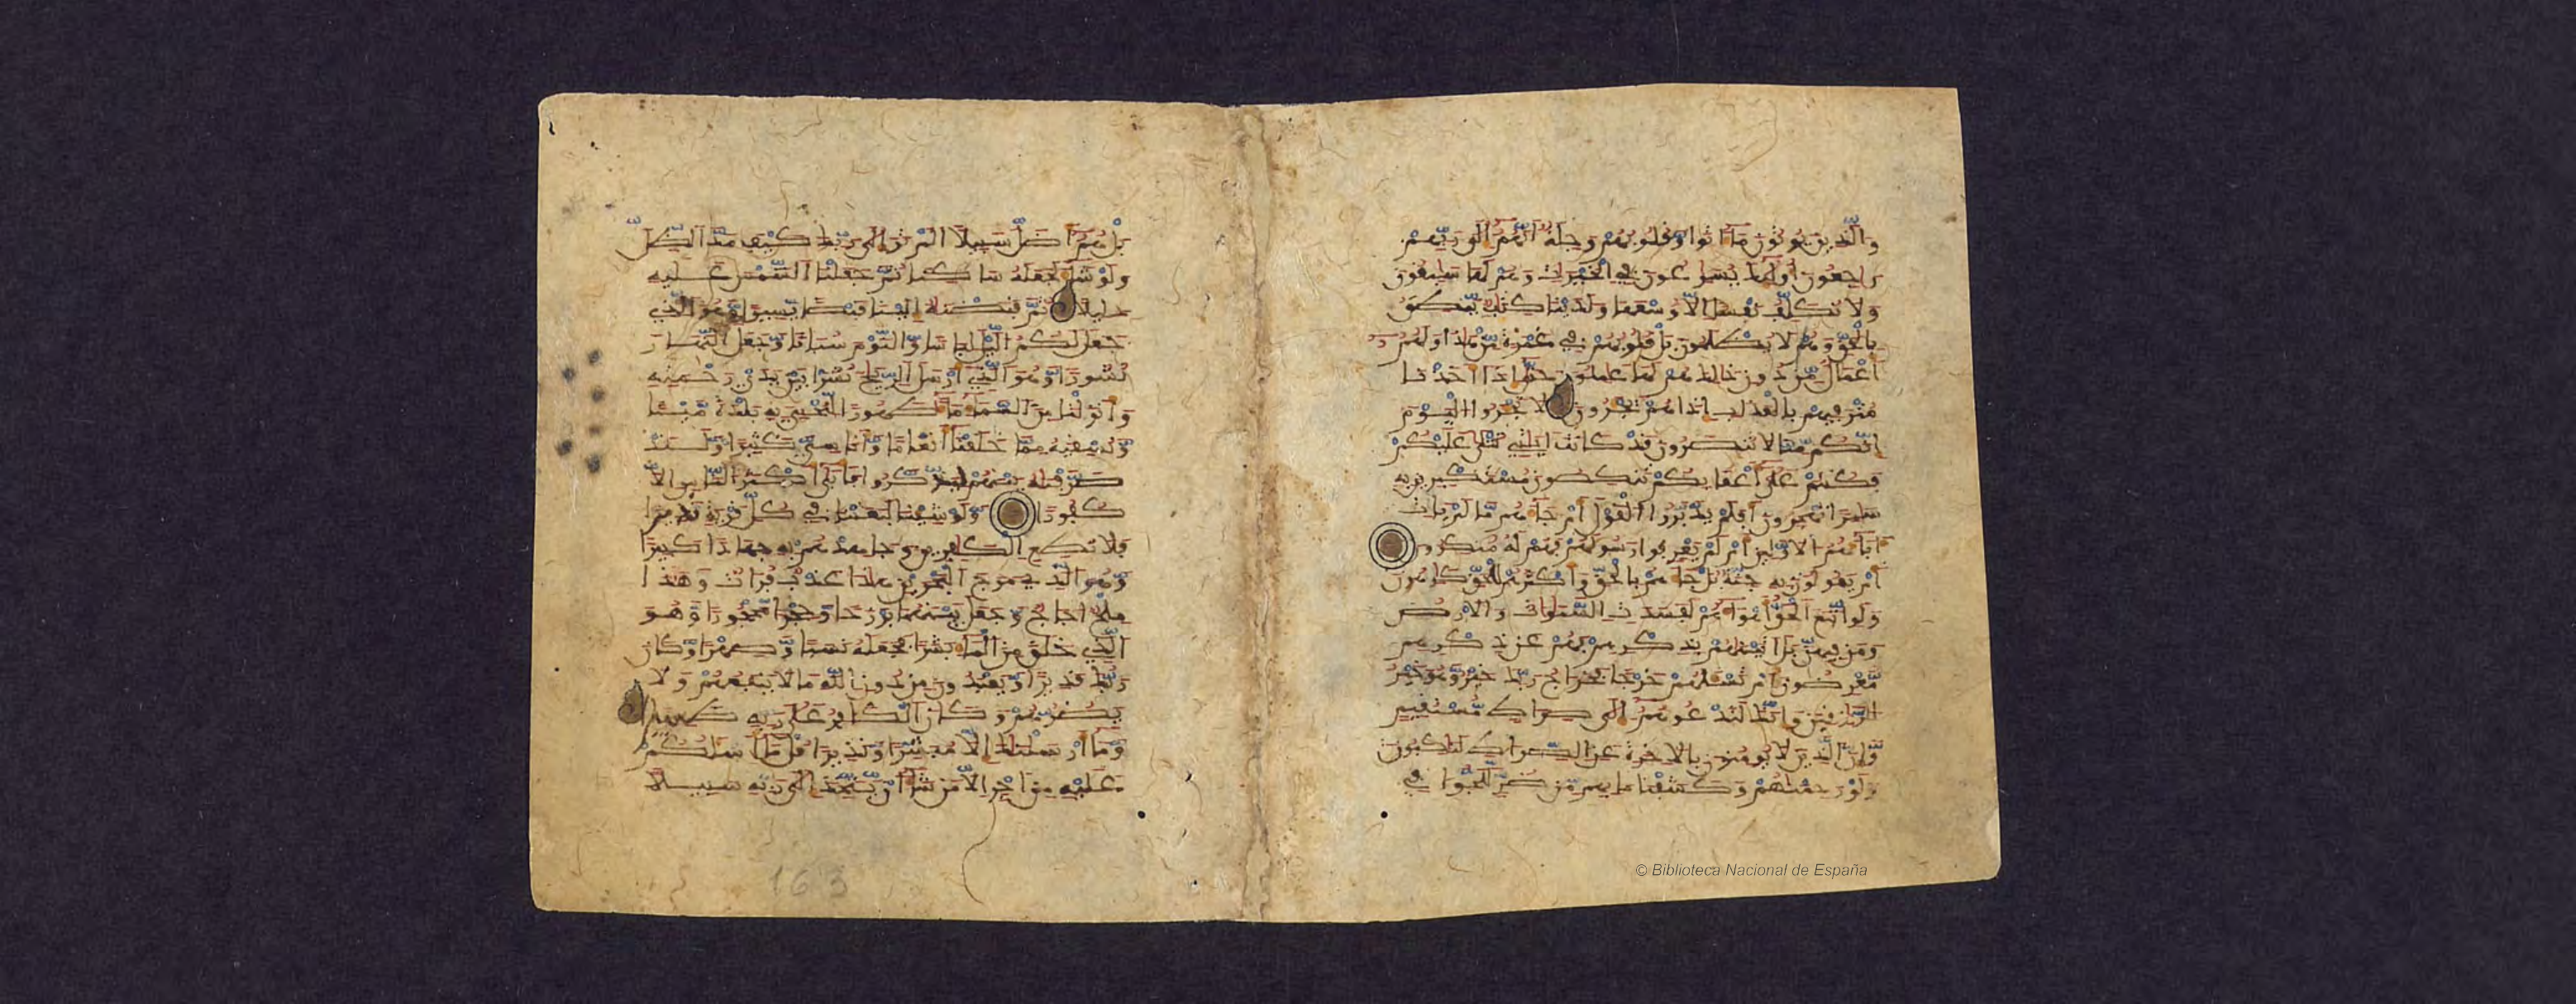 والذين يوتون ما اتوا وقلوبهم وجلة انهم الى ربهم
راجعون اولئك يسارعون في الخيرات وهم لها سابقون
ولا نكلف نفسا الا وسعها ولدينا كتاب ينطق
بالحق وهم لا يظلمون بل قلوبهم في غمرة من هذا ولهم
اعمال من دون ذلك هم لها عاملون حتى اذا اخذنا
مترفيهم بالعذاب اذا هم يجرون لا تجروا اليوم
انكم منا لا تنصرون قد كانت ايتي تتلى عليكم
فكنتم على اعقابكم تنكصون مستكبرين به
سامرا تهجرون افلم يدبروا القول ام جاءهم ما لم يات
اباءهم الاولين ام لم يعرفوا رسولهم فهم له منكرون
ام يقولون به جنة بل جاءهم بالحق واكثرهم للحق كارهون
ولو اتبع الحق اهواءهم لفسدت السماوات والارض
ومن فيهن بل اتينهم بذكرهم فهم عن ذكرهم
معرضون ام تسئلهم خرجا فخراج ربك خير وهو خير
الرازقين وانك لتدعوهم الى صراط مستقيم
وان الذين لا يومنون بالاخرة عن الصراط لناكبون
ولو رحمناهم وكشفنا ما بهم من ضر للجوا في
بل هم اضل سبيلا الم تر الى ربك كيف مد الظل
ولو شاء لجعله ساكنا ثم جعلنا الشمس عليه
دليلا ثم قبضنه الينا قبضا يسيرا وهو الذي
جعل لكم اليل لباسا والنوم سباتا وجعل النهار
نشورا وهو الذي ارسل الريح نشرا بين يدي رحمته
وانزلنا من السماء ماء طهورا لنحيي به بلدة ميتا
ونسقيه مما خلقنا انعاما واناسي كثيرا ولقد
صرفنه بينهم ليذكروا فابى اكثر الناس الا
كفورا ولو شينا لبعثنا في كل قرية نذيرا
فلا تطع الكافرين وجاهدهم به جهادا كبيرا
وهو الذي مرج البحرين هذا عذب فرات وهذا
ملح اجاج وجعل بينهما برزخا وحجرا محجورا وهو
الذي خلق من الماء بشرا فجعله نسبا وصهرا وكان
ربك قديرا ويعبدون من دون الله ما لا ينفعهم ولا
يضرهم وكان الكافر على ربه ظهيرا
وما ارسلنك الا مبشرا ونذيرا قل ما اسلكم
عليه من اجر الا من شاء ان يتخذ الى ربه سبيلا
163
© Biblioteca Nacional de España